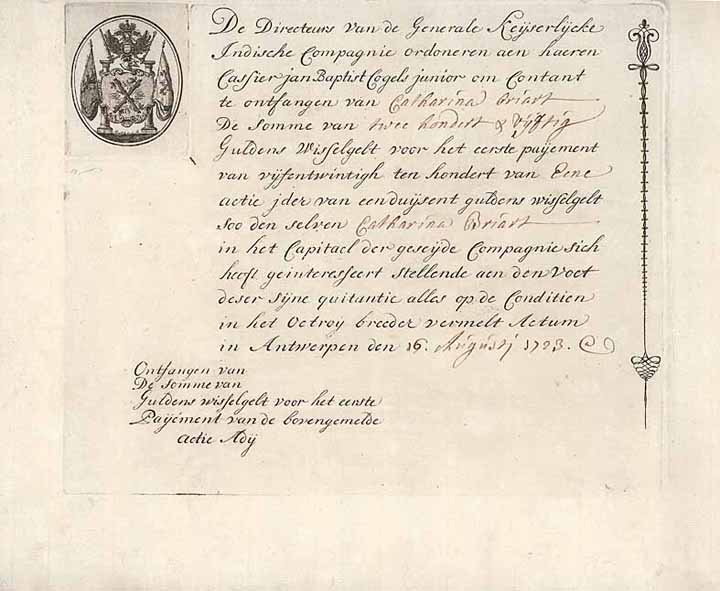 De Directeurs van de Generale Keÿserlÿcke
Indische Compagnie ordoneren aen haeren
Cassier jan Baptist Cogels junior om Contant
te ontfangen van Catharina Briart
De somme van twee hondert & vÿfftig
Guldens Wisselgelt voor het eerste paÿement
van vÿfentwintigh ten hondert van Eene
actie jder van eenduÿsent guldens wisselgelt
soo den selven Catharina Briart
in het Capitael der geseÿde Compagnie sich
heeft geinteresseert stellende aen den Voet
deser sÿne quitantie alles op de Conditien
in het Octroÿ breeder vermelt Actum
in Antwerpen den 16. Augustj 1723.
Ontfangen van
De somme van
Guldens wisselgelt voor het eerste
Paÿement van de bovengemelde
actie Adÿ